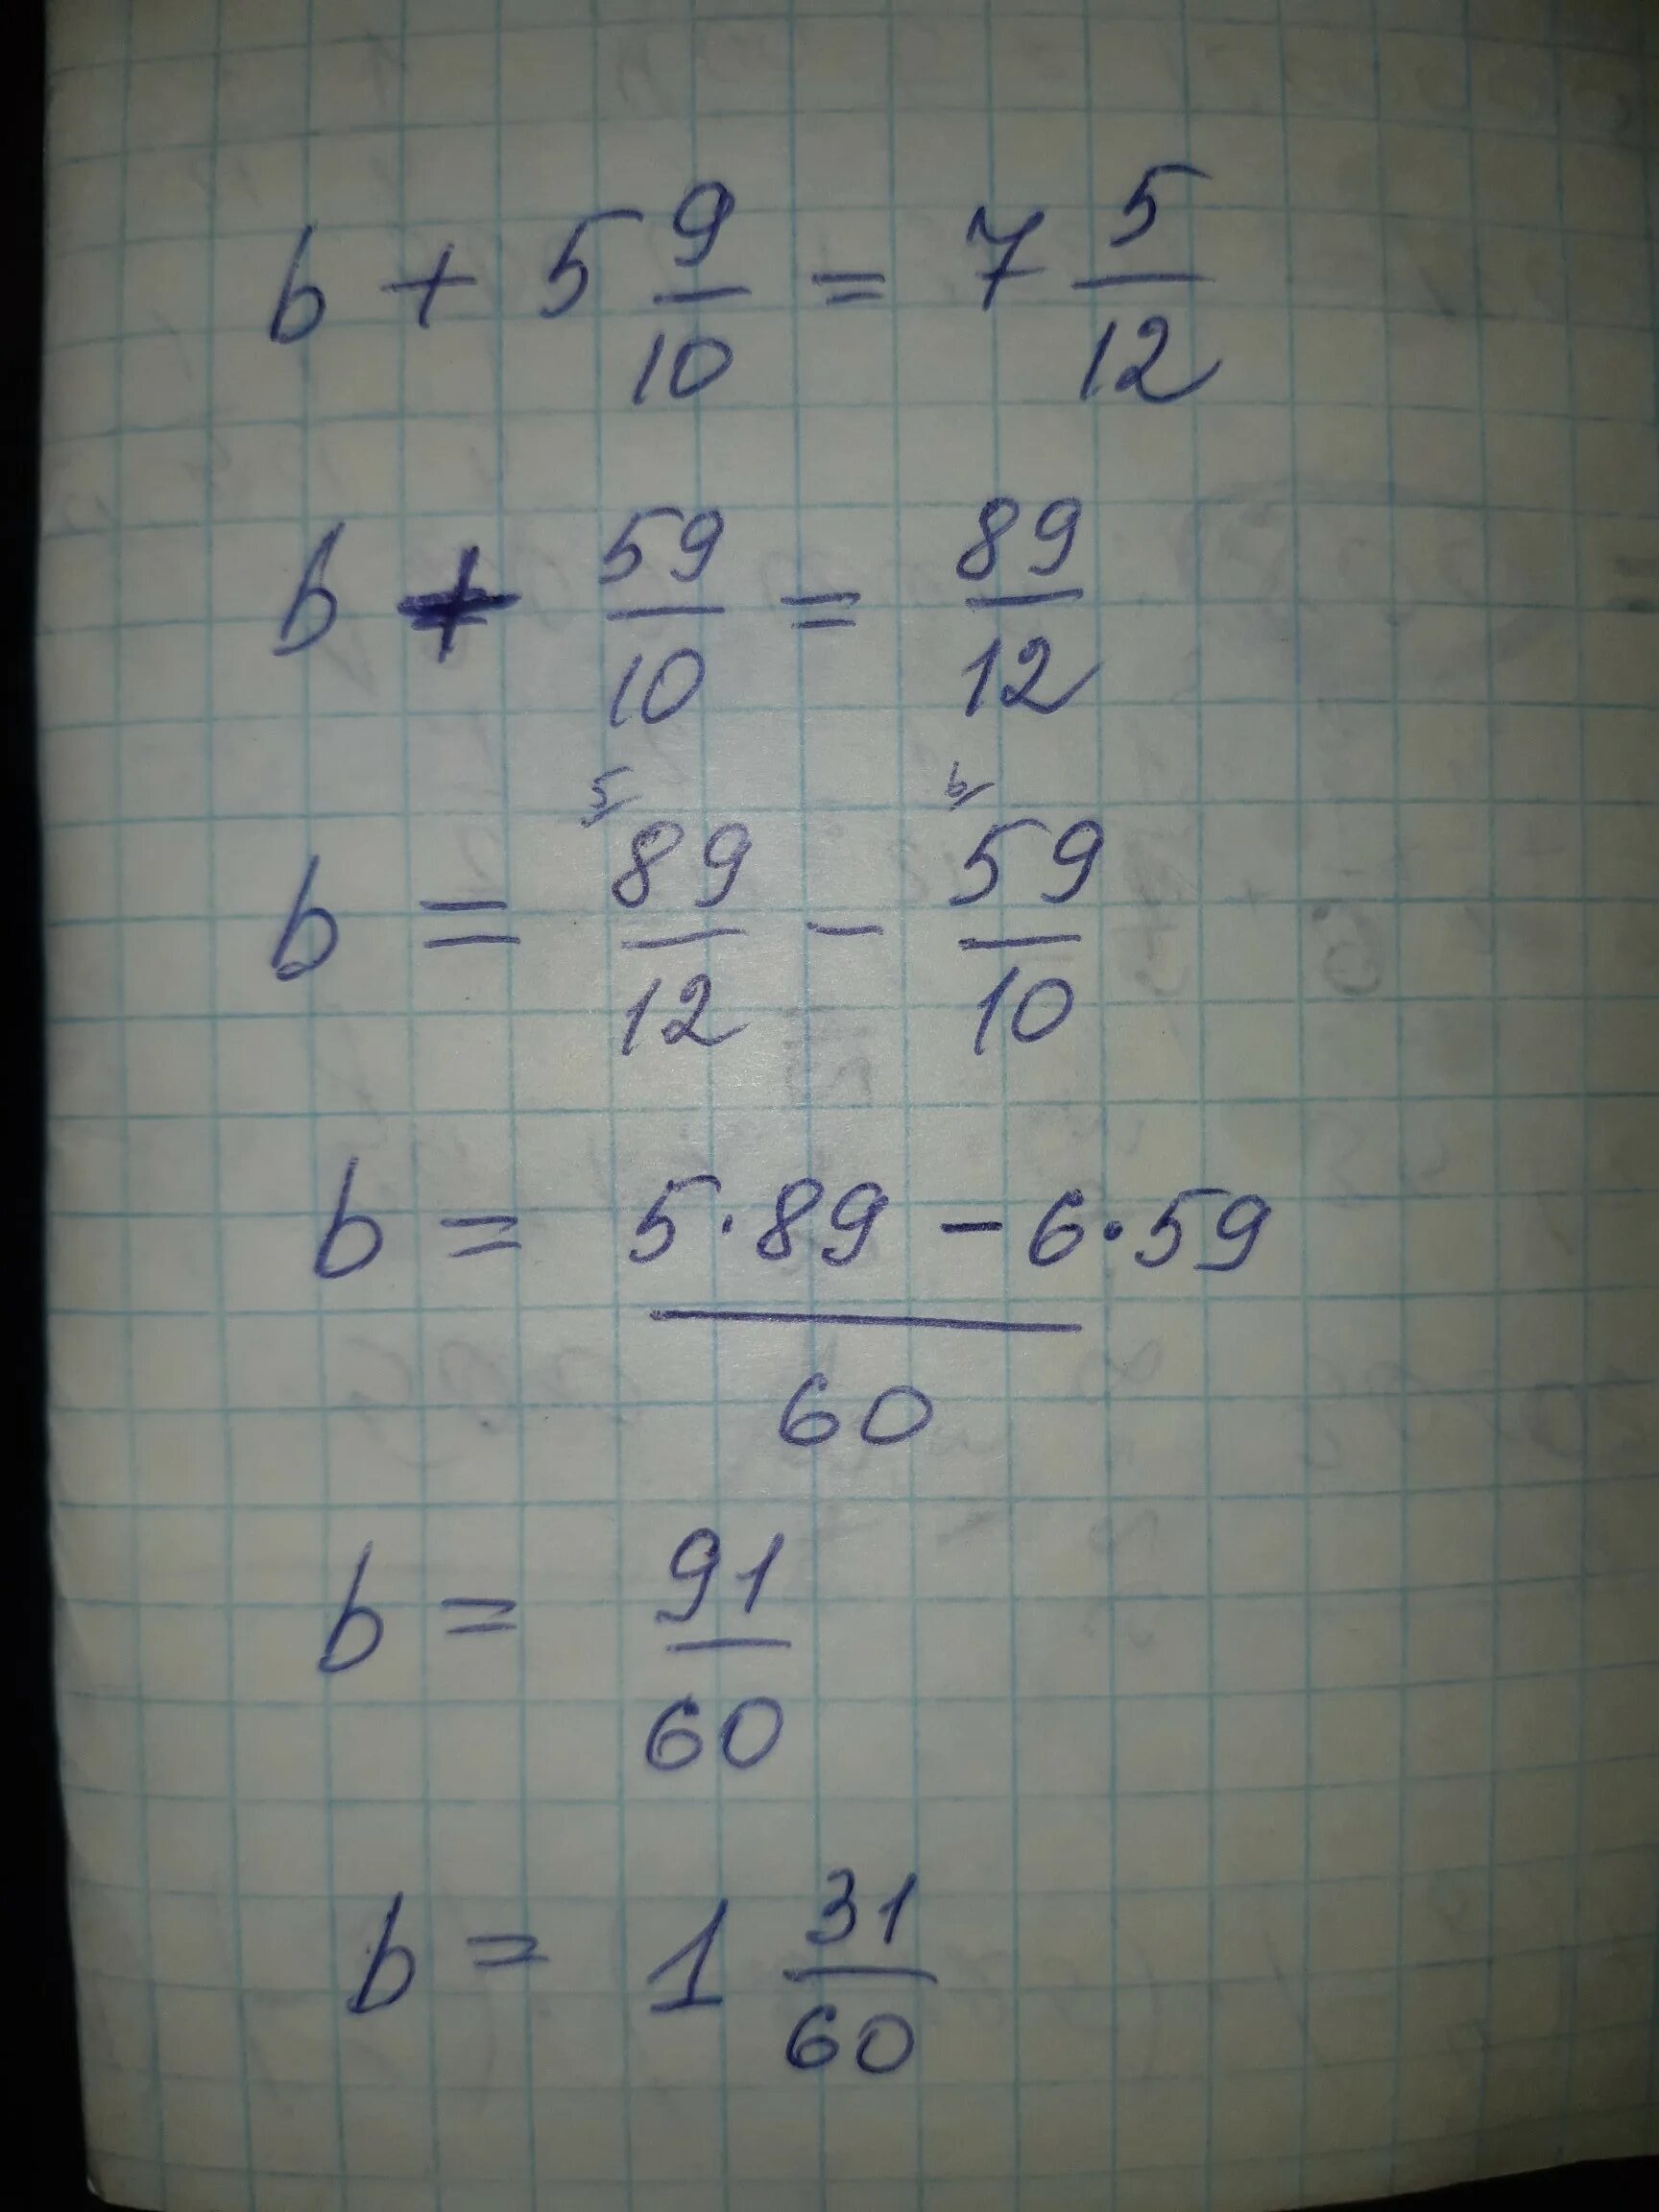 b + 5 9/10 = 7 5/12
b + 59/10 = 89/12
b = 5/ 89/12 - 6/ 59/10
b = 5·89 - 6·59 / 60
b = 91/60
b = 1 31/60